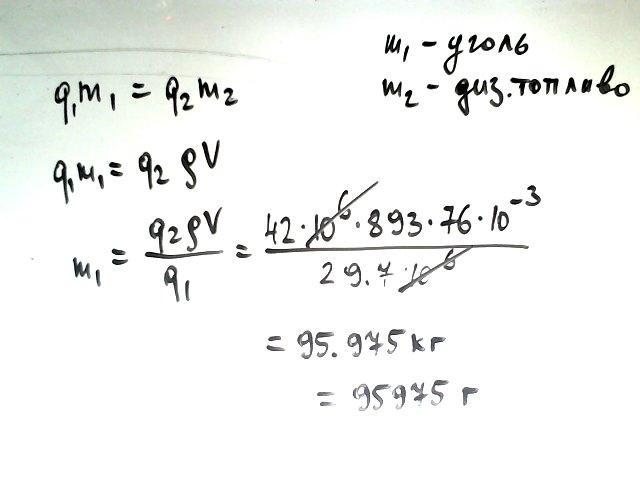 m₁ - уголь
m₂ - диз.топливо
q₁m₁ = q₂m₂
q₁m₁ = q₂ ρV
m₁ = q₂ρV / q₁ = 42·10⁶·893·76·10⁻³ / 29.7·10⁶
= 95.975 кг
= 95975 г